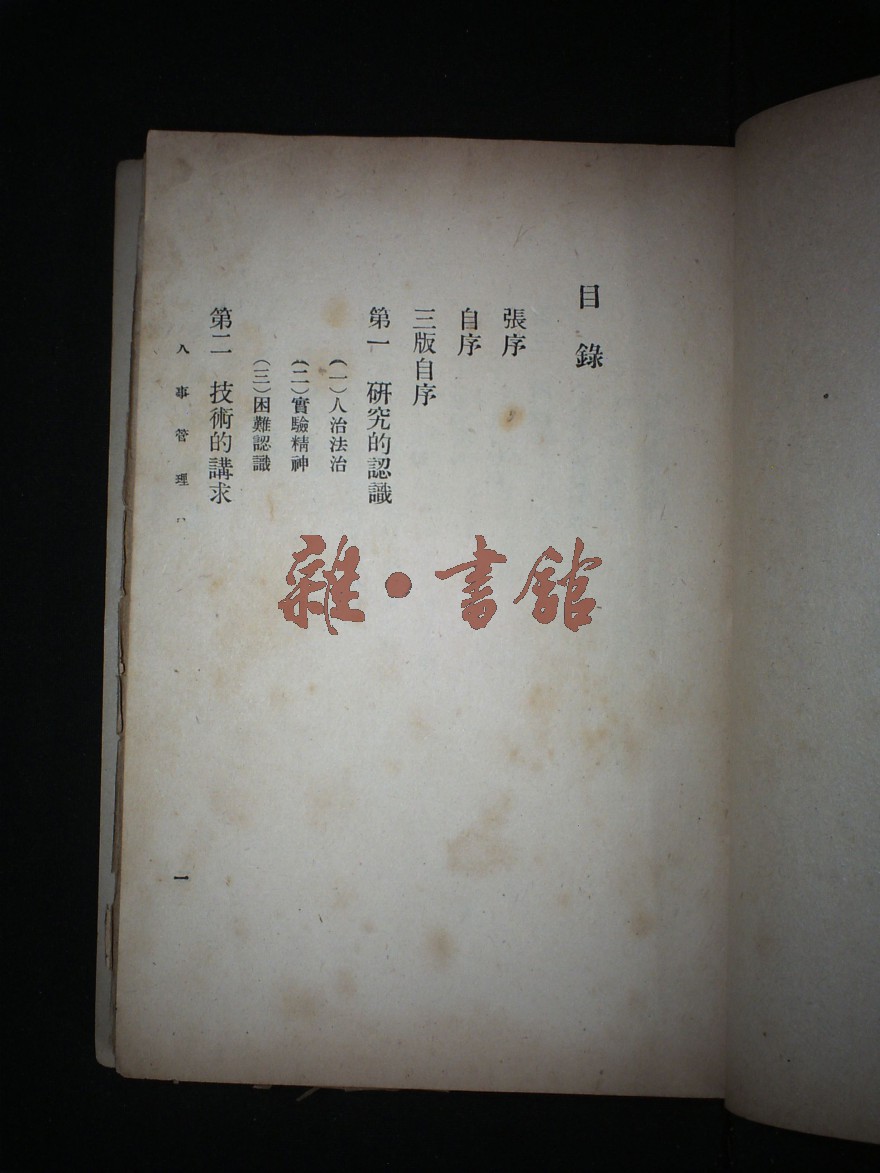 目錄
張序
自序
三版自序
第一 研究的認識
(一)人治法治
(二)實驗精神
(三)困難認識
第二 技術的講求
人事管理
一
雜・書館